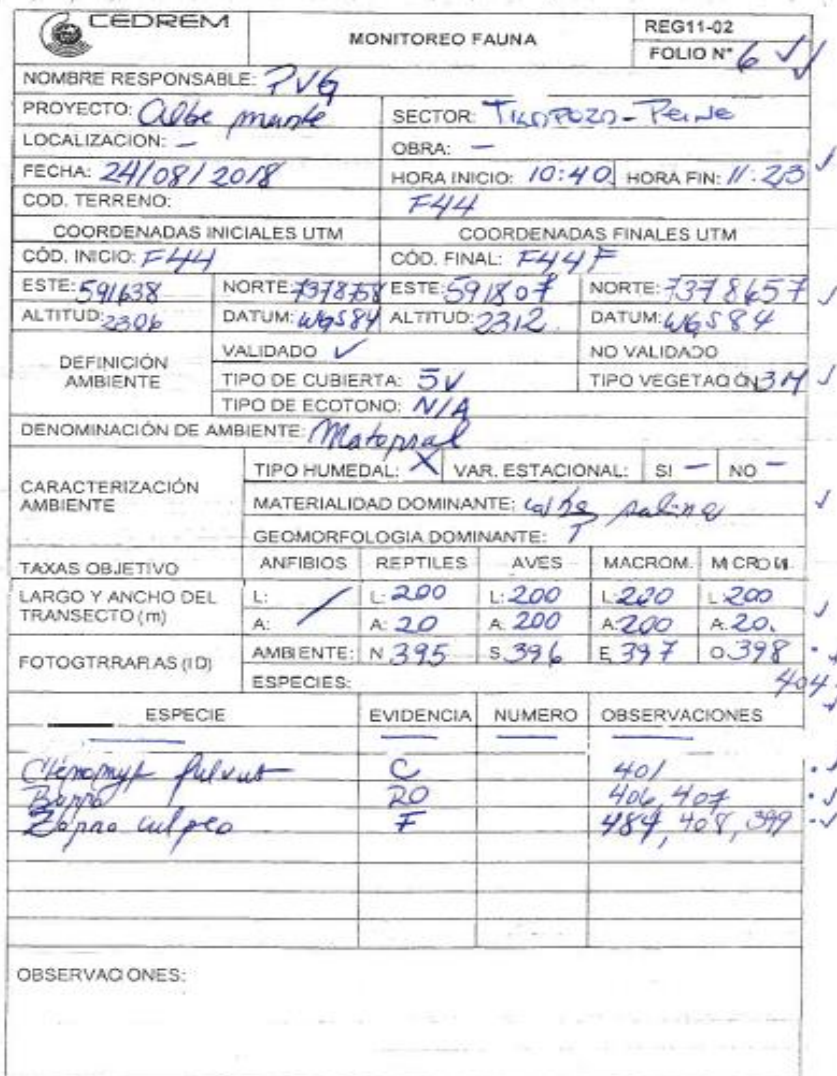 CEDREM
MONITOREO FAUNA
REG11-02
FOLIO N° 6
NOMBRE RESPONSABLE: PVG
PROYECTO: Albe marle SECTOR: TILOPOZO - Peine
LOCALIZACION: - OBRA: -
FECHA: 24/08/2018 HORA INICIO: 10:40 HORA FIN: 11:23
COD. TERRENO: F44
COORDENADAS INICIALES UTM COORDENADAS FINALES UTM
CÓD. INICIO: F44 CÓD. FINAL: F44F
ESTE: 591638 NORTE: 7378758 ESTE: 591807 NORTE: 7378657
ALTITUD: 2306 DATUM: WGS84 ALTITUD: 2312. DATUM: WGS84
DEFINICIÓN AMBIENTE
VALIDADO ✓ NO VALIDADO
TIPO DE CUBIERTA: 5V TIPO VEGETACIÓN 3M
TIPO DE ECOTONO: N/A
DENOMINACIÓN DE AMBIENTE: Matorral
CARACTERIZACIÓN AMBIENTE
TIPO HUMEDAL: X VAR. ESTACIONAL: SI - NO -
MATERIALIDAD DOMINANTE: salina
GEOMORFOLOGIA DOMINANTE: T
TAXAS OBJETIVO ANFIBIOS REPTILES AVES MACROM. MICROM.
LARGO Y ANCHO DEL TRANSECTO (m)
L: / L: 200 L: 200 L: 200 L: 200
A: A: 20 A: 200 A: 200 A: 20.
FOTOGTRRARIAS (ID) AMBIENTE: N 395 S 396 E 397 O 398
ESPECIES: 404
ESPECIE EVIDENCIA NUMERO OBSERVACIONES
Ctenomys fulvus C 401
Burro RO 406, 407
Zorro culpeo F 484, 408, 399
OBSERVACIONES: